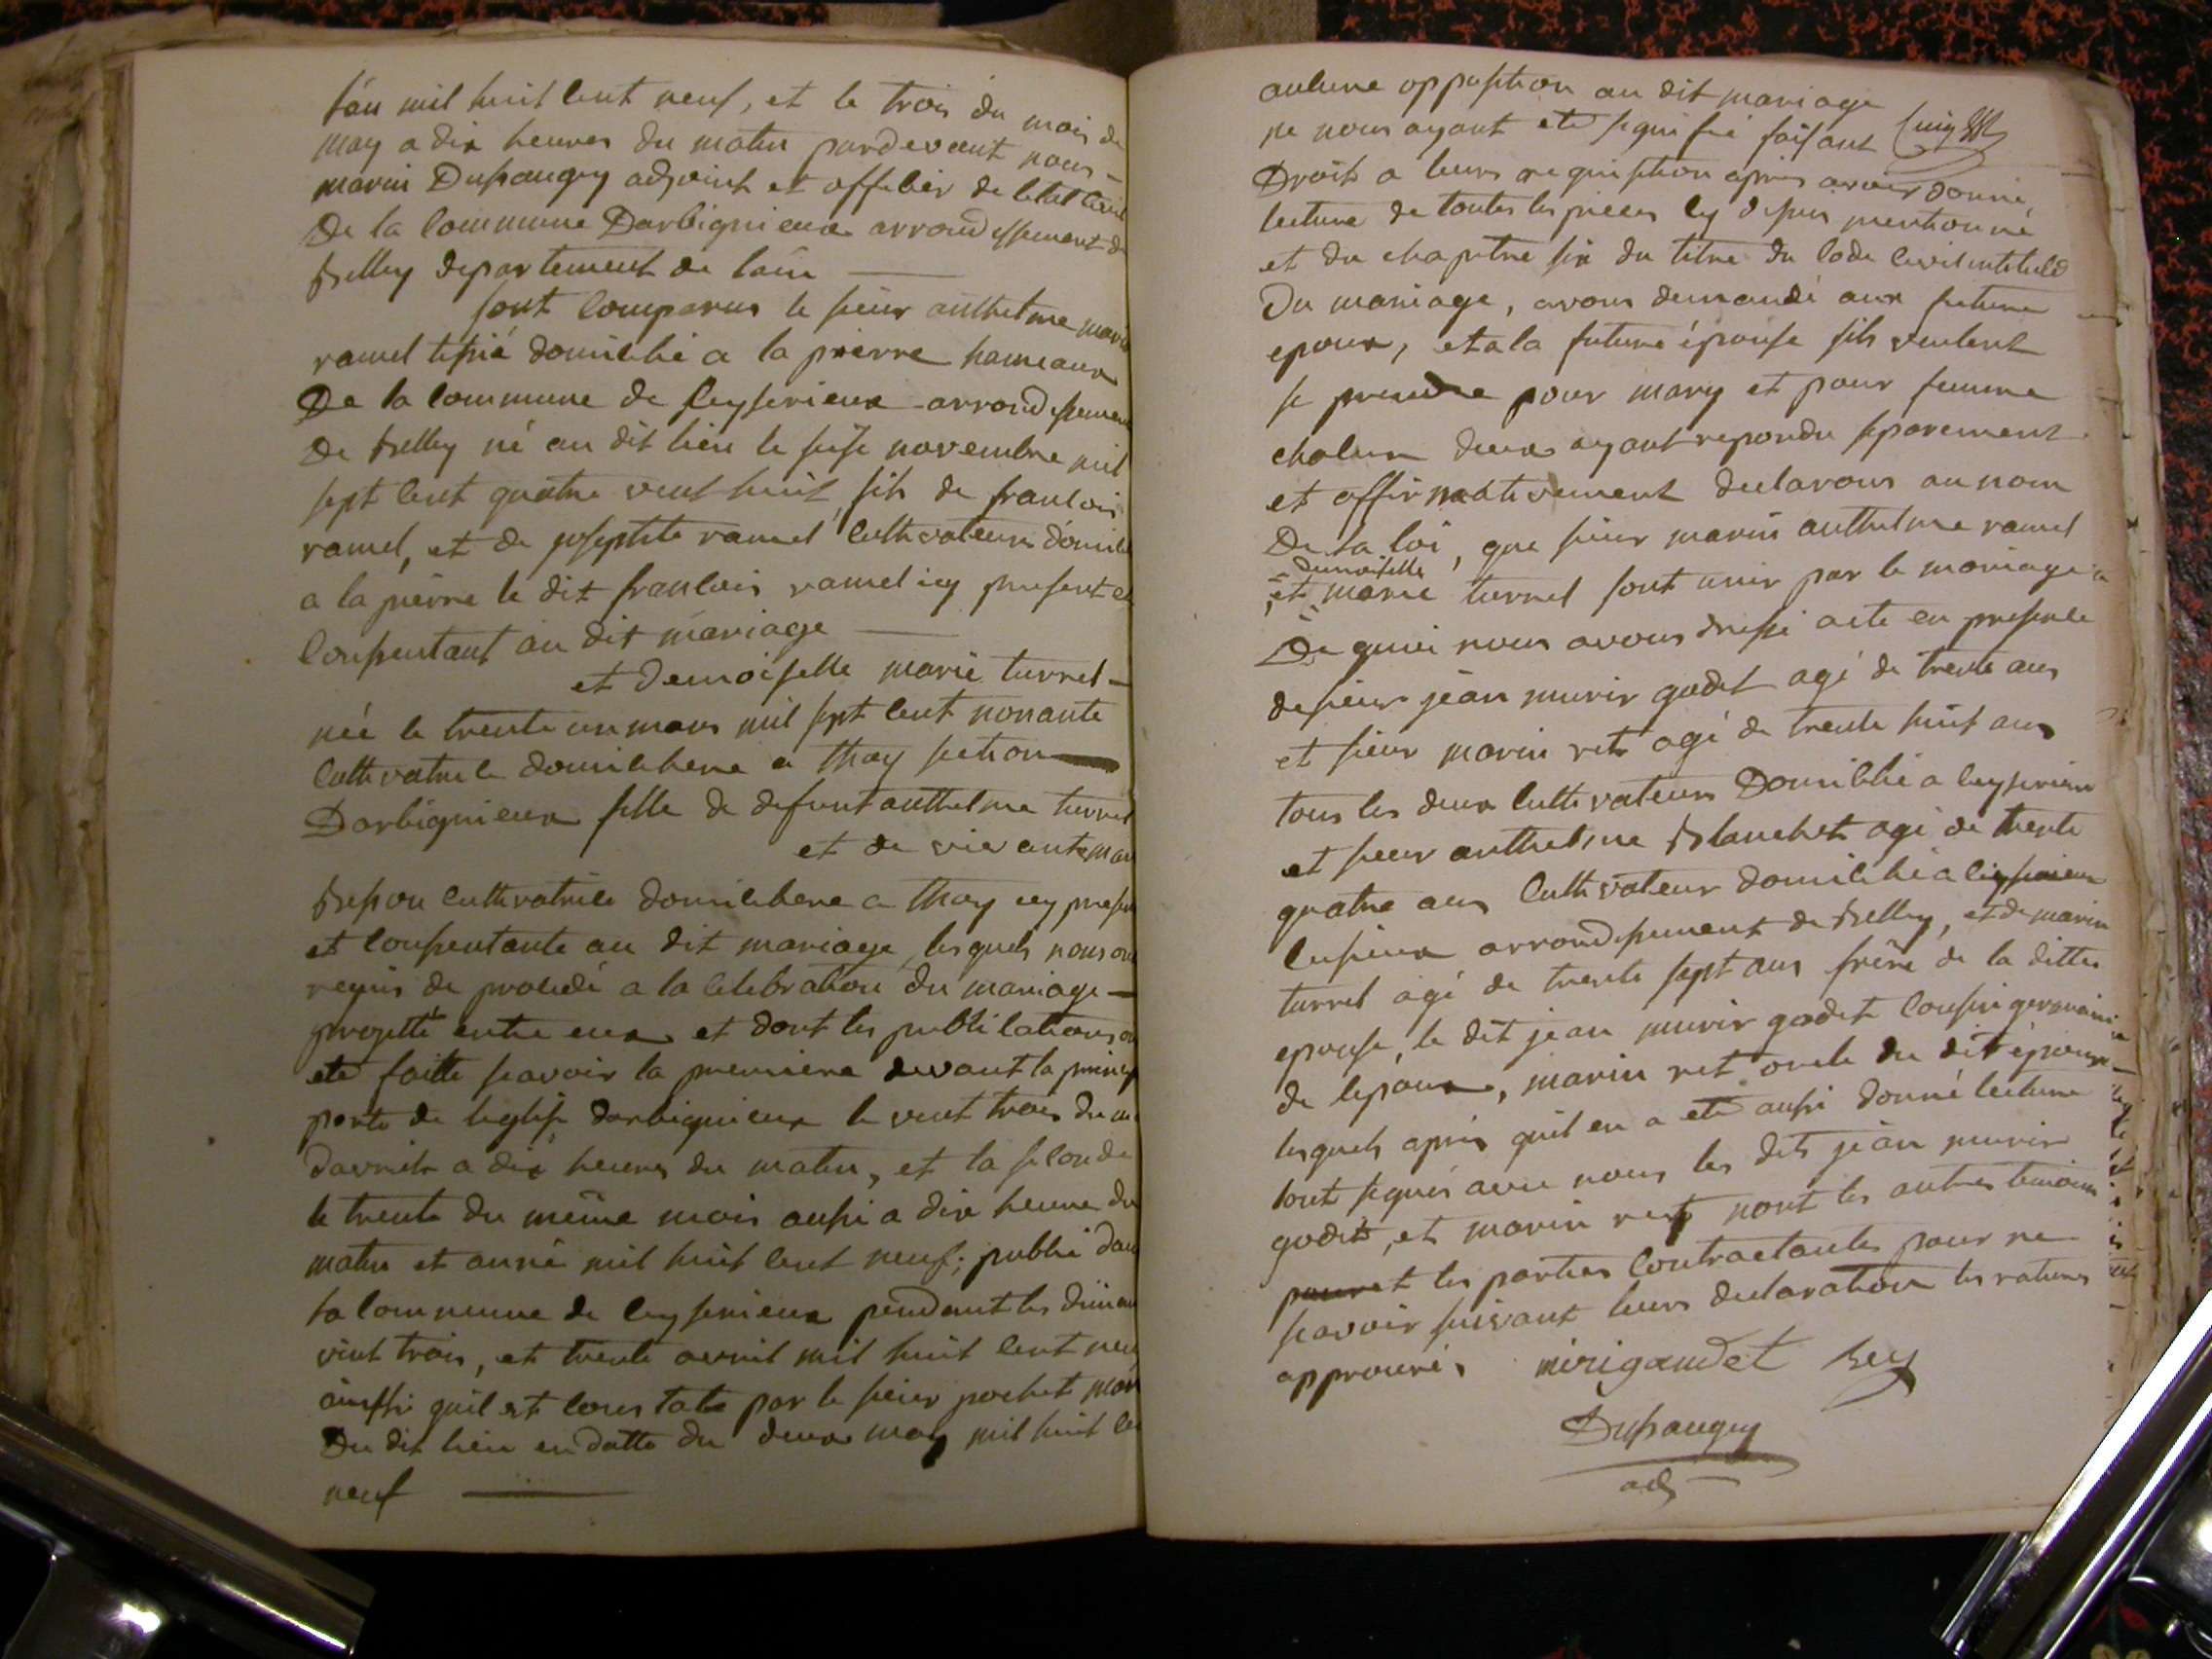 lan mil huit cent neuf, et le trois du mois de
may a dix heures du matin pardevant nous -
marin Dupaugey adjoint et officier de letat civil
De la commune Darbignieux arrondissement de
Belley departement de lain
sont comparus le sieur anthelme marin
ramel domicilié a la pierre hameaux
De la commune de Ceyserieux arrondissement
De Belley né au dit lieu le seise novembre mil
sept cent quatre vint huit, fils de francois
ramel, et de josephte ramel cultivateurs domicil
a la pierre le dit francois ramel icy present et
consentant au dit mariage
et demoiselle marie turrel -
née le trente un mars mil sept cent nonante
cultivatrice domiciliere a thoy section
Darbignieux fille de defunt anthelme turrel
et de vivante mar
cultivatrice domiciliere a thoy icy presen
et consentante au dit mariage, lesquels nous on
requis de procedé a la celebration du mariage -
projetté entre eux et dont les publications on
eté faitte scavoir la premiere devant la princip
porte de leglise darbignieux le vint trois du
davril a dix heures du matin, et la seconde
le trente du même mois aussi a dix heure du
matin et anné mil huit cent neuf; publié dans
la commune de ceyserieux pendant les diman
vint trois, et trente avril mil huit cent neuf
ainssi quil est constate par le sieur pochet mair
Du dit lieu en datte du deux may mil huit ce
neuf
aucune opposition au dit mariage
ne nous ayant eté signifié faisant
Droit a leurs requisition apres avoir donné
lecture de toutes les pieces cy desus mentionné
et du chapitre six du titre du code civil intitulé
Du mariage, avons demandé aux future
epoux, et a la future épouse sils veulent
se prendre pour mary et pour femme
chacun deux ayant repondu separement
et affirmativement declarons au nom
De la loi, que sieur marin anthelme ramel
demoiselle
et marie turrel sont unis par le mariage
De quoi nous avons dressé acte en presence
de sieur jean murir godet agé de trente ans
et sieur marin rey agé de trente huit ans
tous les deux cultivateurs Domicilié a ceyserieu
et sieur anthelme Blanchet agé de trente
quatre ans cultivateur domicilié a
arrondissement de Belley, et de marin
turrel agé de trente sept ans frère de la ditte
epouse, le dit jean murir godet cousin germain
de lepoux, marin rey oncle du dit époux
lesquels après quil en a eté aussi donné lecture
sont signés avec nous les dits jean murir
godet, et marin rey nont les autres temoins
les parties contractantes pour ne
scavoir suivant leurs declaration les ratures
approuvé,   mirigaudet   Rey
Dupaugey
adj